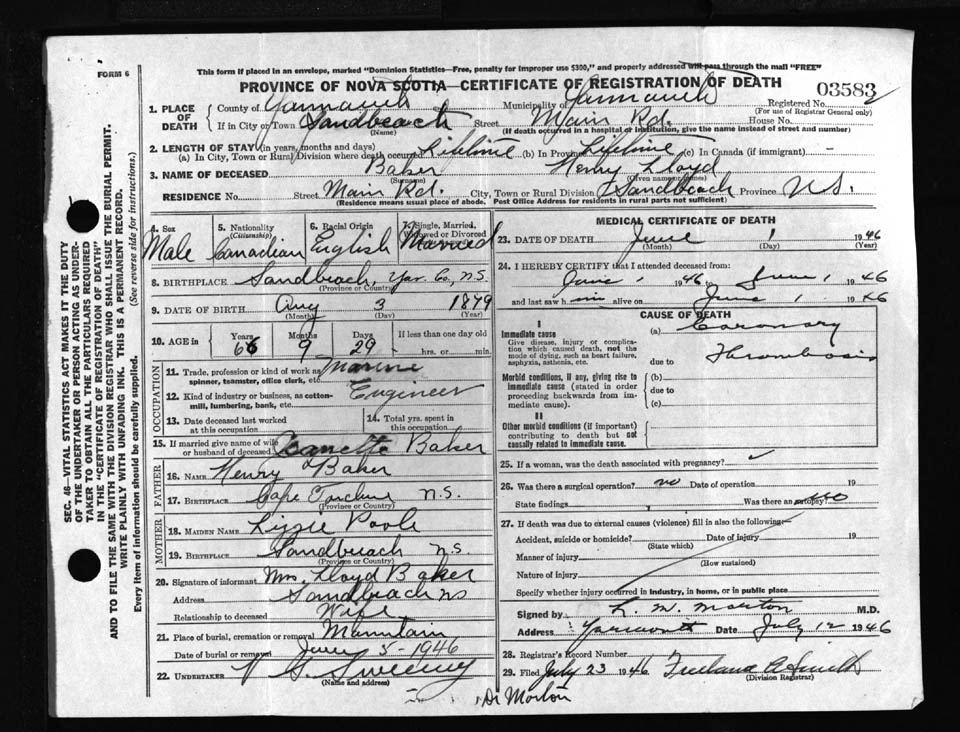 FORM 6
This form if placed in an envelope, marked "Dominion Statistics—Free, penalty for improper use $300," and properly addressed will pass through the mail "FREE"
PROVINCE OF NOVA SCOTIA—CERTIFICATE OF REGISTRATION OF DEATH
03583
1. PLACE OF DEATH County of Yarmouth Municipality of Yarmouth Registered No. 2
(For use of Registrar General only)
If in City or Town Sandbeach Street Main Rd. House No.
(Name) (If death occurred in a hospital or institution, give the name instead of street and number)
2. LENGTH OF STAY (in years, months and days)
(a) In City, Town or Rural Division where death occurred Lifetime (b) In Province Lifetime (c) In Canada (if immigrant) -
3. NAME OF DECEASED Baker Henry Lloyd
(Surname) (Given name or names)
RESIDENCE No. Street Main Rd. City, Town or Rural Division Sandbeach Province N.S.
(Residence means usual place of abode. Post Office Address for residents in rural parts not sufficient)
4. Sex Male
5. Nationality (Citizenship) Canadian
6. Racial Origin English
7. Single, Married, Widowed or Divorced Married
8. BIRTHPLACE Sandbeach, Yar. Co., N.S.
(Province or Country)
9. DATE OF BIRTH Aug 3 1879
(Month) (Day) (Year)
10. AGE in Years 66 Months 9 Days 29 - If less than one day old
hrs. or min.
OCCUPATION
11. Trade, profession or kind of work as spinner, teamster, office clerk, etc. Marine
12. Kind of industry or business, as cotton-mill, lumbering, bank, etc. Engineer
13. Date deceased last worked at this occupation
14. Total yrs. spent in this occupation
15. If married give name of wife or husband of deceased Jeanette Baker
FATHER
16. NAME Henry Baker
17. BIRTHPLACE Cape Forchu N.S.
(Province or Country)
MOTHER
18. MAIDEN NAME Lizzie Poole
19. BIRTHPLACE Sandbeach N.S.
(Province or Country)
20. Signature of informant Mrs. Lloyd Baker
Address Sandbeach NS
Relationship to deceased Wife
21. Place of burial, cremation or removal Mountain
Date of burial or removal June 3 - 1946
22. UNDERTAKER V S. Sweeny
(Name and address)
MEDICAL CERTIFICATE OF DEATH
23. DATE OF DEATH June 1 1946
(Month) (Day) (Year)
24. I HEREBY CERTIFY that I attended deceased from:
June 1 1946 to June 1 1946
and last saw him alive on June 1 1946
CAUSE OF DEATH
I
Immediate cause (a) Coronary
Give disease, injury or complication which caused death, not the mode of dying, such as heart failure, asphyxia, asthenia, etc. due to Thrombosis
Morbid conditions, if any, giving rise to immediate cause (stated in order proceeding backwards from immediate cause). (b)
due to
(c)
II
Other morbid conditions (if important) contributing to death but not causally related to immediate cause.
25. If a woman, was the death associated with pregnancy?
26. Was there a surgical operation? no Date of operation 19
State findings Was there an autopsy? no
27. If death was due to external causes (violence) fill in also the following:—
Accident, suicide or homicide? Date of injury 19
(State which)
Manner of injury
(How sustained)
Nature of injury
Specify whether injury occurred in industry, in home, or in public place
Signed by L. M. Morton M.D.
Address Yarmouth Date July 12 1946
28. Registrar's Record Number
29. Filed July 23 1946 Freeland A Smith
(Division Registrar)
Dr Morton
SEC. 46—VITAL STATISTICS ACT MAKES IT THE DUTY
OF THE UNDERTAKER OR PERSON ACTING AS UNDER-
TAKER TO OBTAIN ALL THE PARTICULARS REQUIRED
IN THE "CERTIFICATE OF REGISTRATION OF DEATH"
AND TO FILE THE SAME WITH THE DIVISION REGISTRAR WHO SHALL ISSUE THE BURIAL PERMIT.
WRITE PLAINLY WITH UNFADING INK. THIS IS A PERMANENT RECORD.
Every item of information should be carefully supplied. (See reverse side for instructions.)